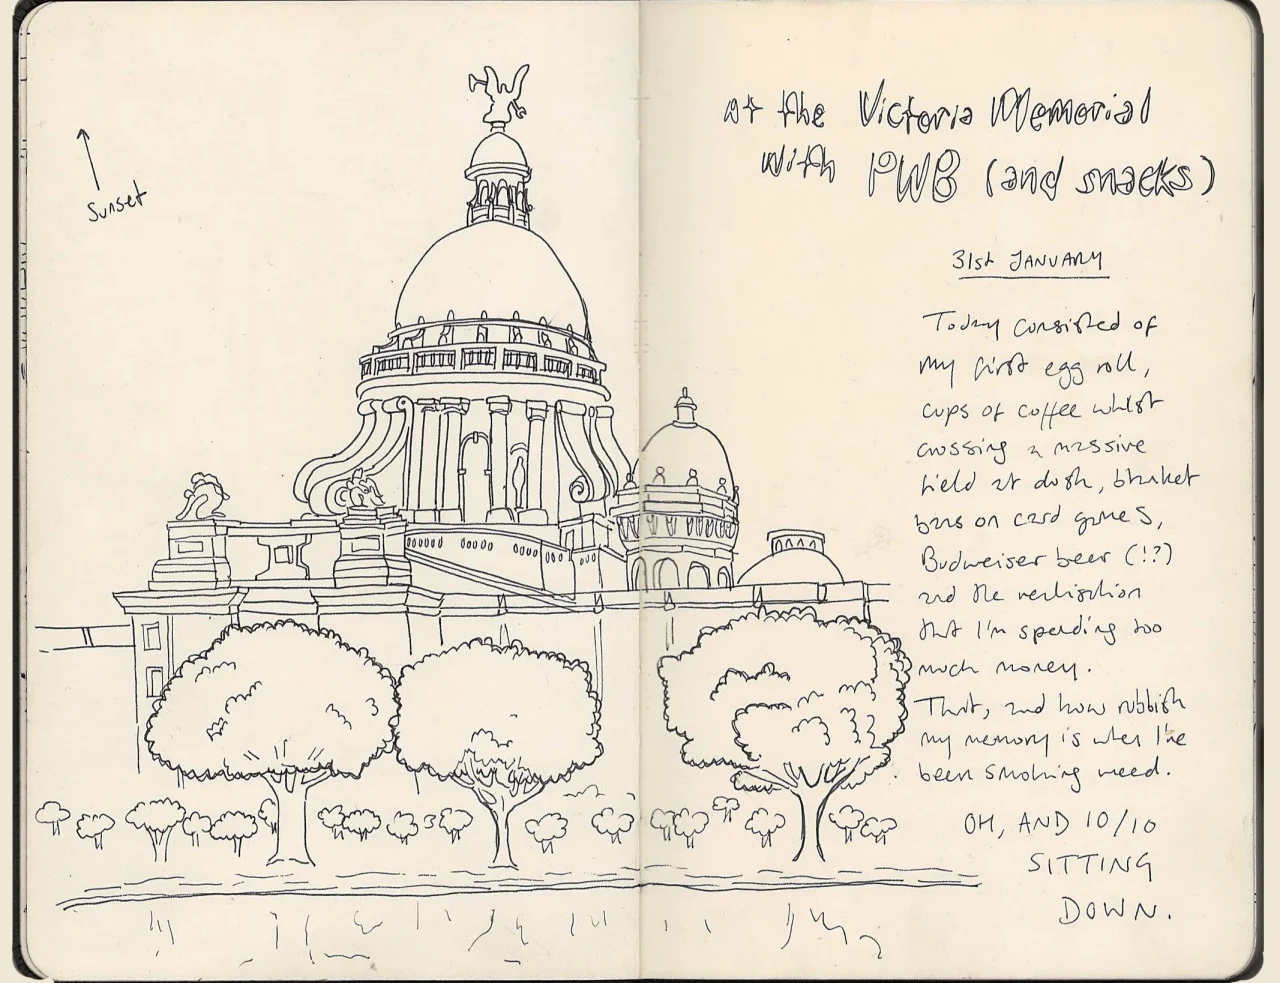 Sunset
at the Victoria Memorial
with PWB (and snacks)
31st JANUARY
Today consisted of
my first egg roll,
cups of coffee whilst
crossing a massive
field at dusk, blanket
bans on card games,
Budweiser beer (!?)
and the realisation
that I'm spending too
much money.
That, and how rubbish
my memory is when I've
been smoking weed.
OH, AND 10/10
SITTING
DOWN.